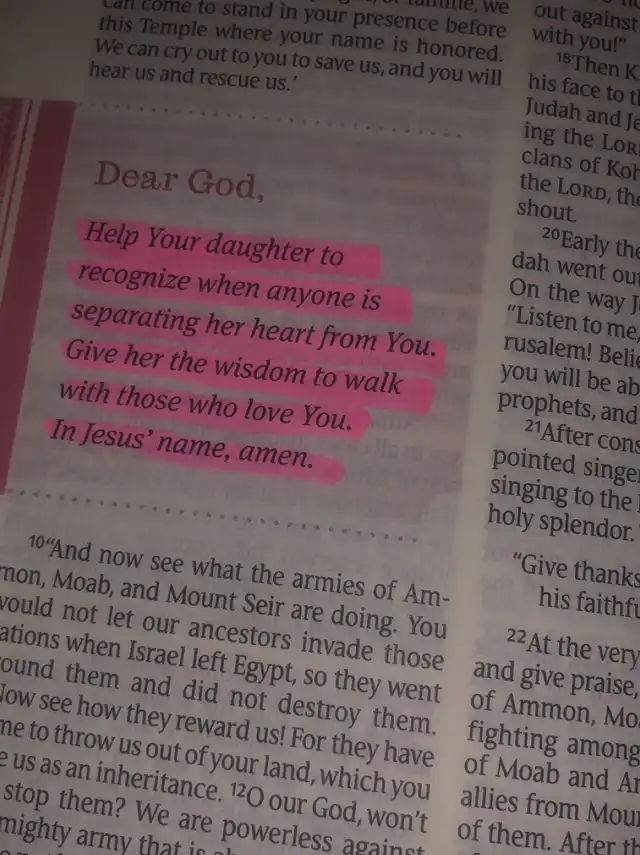 can come to stand in your presence before
this Temple where your name is honored.
We can cry out to you to save us, and you will
hear us and rescue us.'
Dear God,
Help Your daughter to
recognize when anyone is
separating her heart from You.
Give her the wisdom to walk
with those who love You.
In Jesus' name, amen.
10“And now see what the armies of Am-
mon, Moab, and Mount Seir are doing. You
would not let our ancestors invade those
ations when Israel left Egypt, so they went
round them and did not destroy them.
Now see how they reward us! For they have
me to throw us out of your land, which you
e us as an inheritance. 12O our God, won't
stop them? We are powerless against
mighty army that is
out against
with you!”
18Then K
his face to th
Judah and Je
ing the LORD
clans of Koh
the LORD, the
shout.
20Early the
dah went out
On the way J
“Listen to me,
rusalem! Belie
you will be ab
prophets, and
21After cons
pointed singe
singing to the
holy splendor.
“Give thanks
his faithfu
22At the very
and give praise,
of Ammon, Mo
fighting among
of Moab and A
allies from Moun
of them. After th